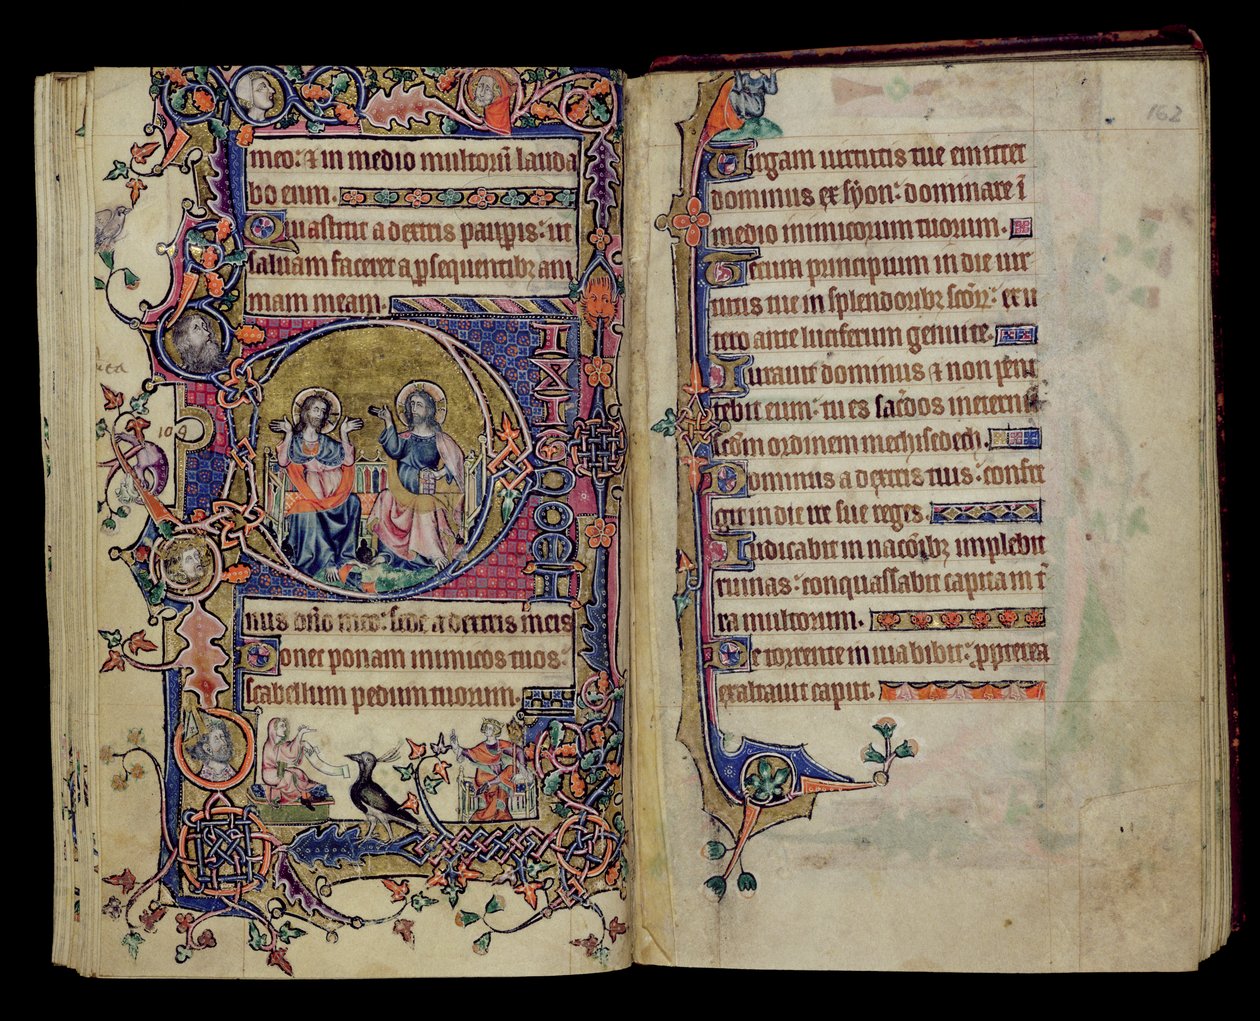 meo: & in medio multorū lauda
bo eum.
Qui astitit a dextris paup̲is: ut
saluam faceret a p̲sequentibꝫ ani
mam meam.
DIXIT DOMI
109
nus dn̄o meo: sede a dextris meis
Donec ponam inimicos tuos:
scabellum pedum tuorum.
162
Uirgam uirtutis tue emittet
dominus ex syon: dominare ī
medio inimicorum tuorum.
Tecum principium in die uir
tutis tue in splendoribꝫ sc̄oꝝ: ex u
tero ante luciferum genui te.
Iurauit dominus & non peni
tebit eum: tu es sac̄dos ineternū
sc̄dm ordinem melchisedech.
Dominus a dextris tuis: confre
git in die ire sue reges.
Iudicabit in nacōibꝫ implebit
ruinas: conquassabit capita in t̄
ra multorum.
De torrente in uia bibit: pp̲terea
exaltauit caput.